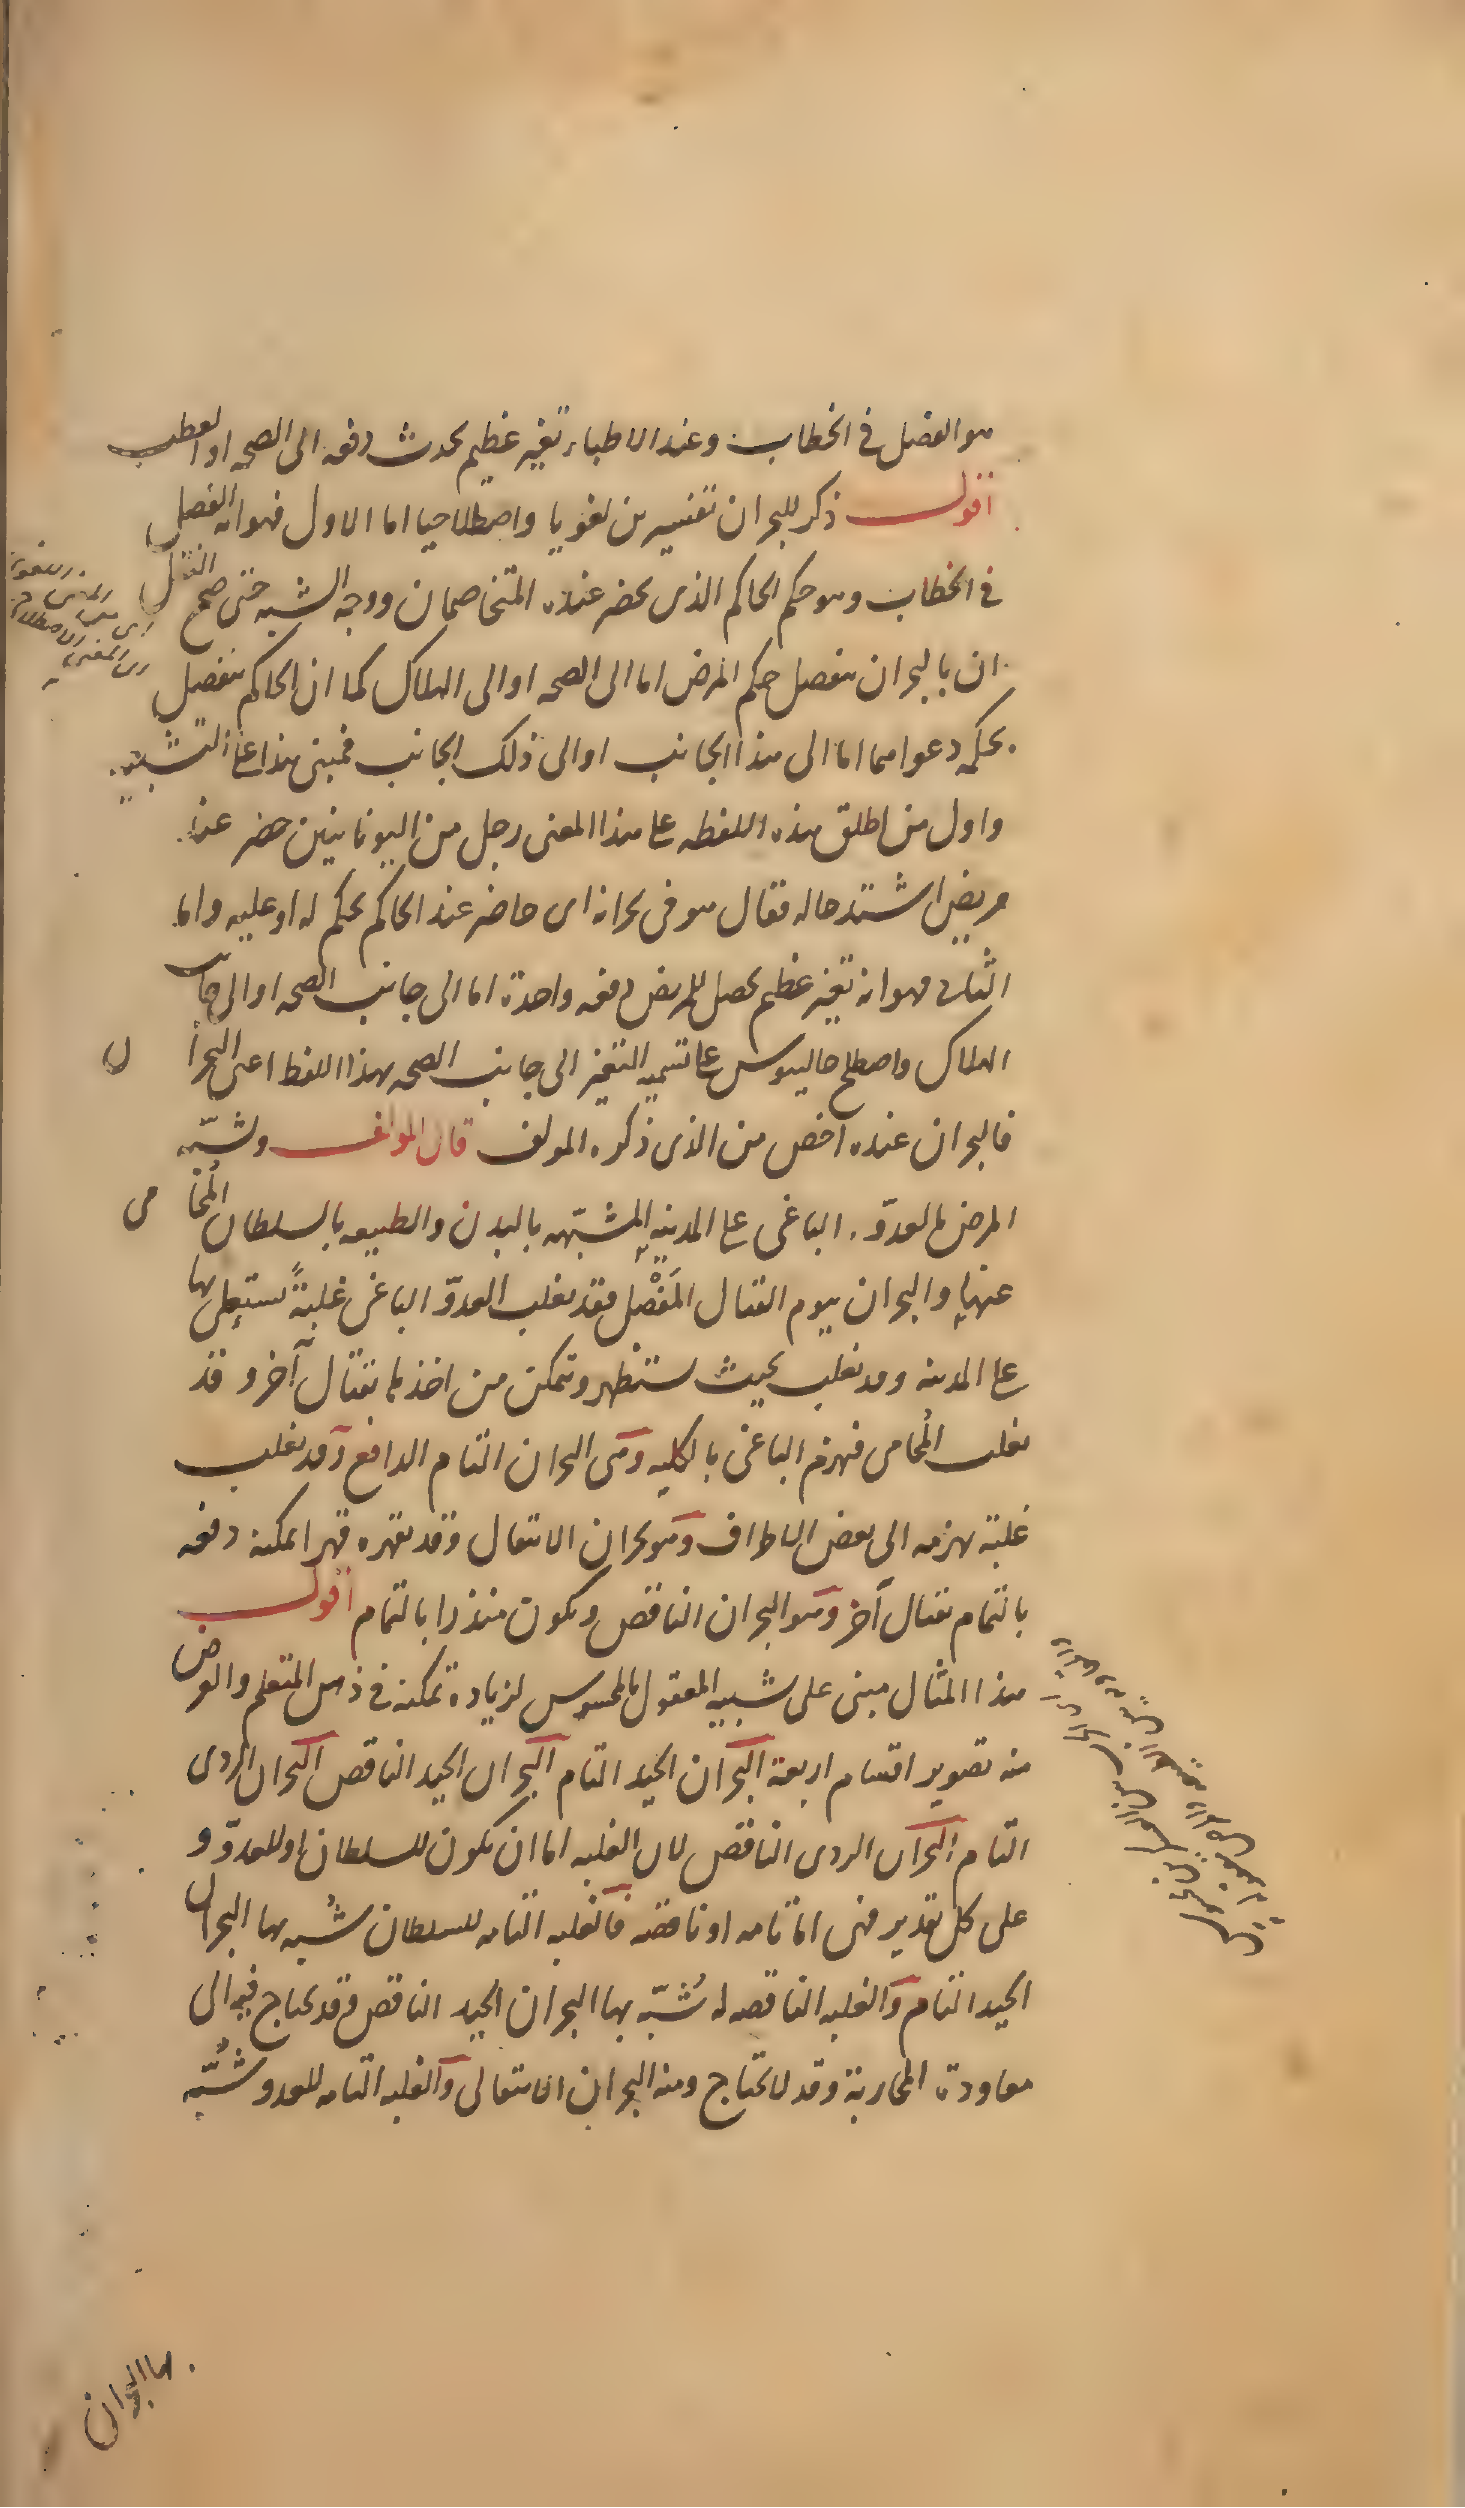 هو الفصل في الخطاب وعند الاطباء تغير عظيم يحدث دفعه الى الصحه او العطب
اقول ذكر للبحران تفسيرين لغويا واصطلاحيا اما الاول فهو انه الفصل
في الخطاب وهو حكم الحاكم الذى يحضر عنده المتخاصمان ووجه الشبه حتى صح النقل
ان بالبحران ينفصل حكم المرض اما الى الصحه او الى الهلاك كما ان الحاكم ينفصل
بحكمه دعواهما اما الى هذا الجانب او الى ذلك الجانب فمبنى هذا على التشبيه
واول من اطلق هذه اللفظه على هذا المعنى رجل من اليونانيين حضر عند
مريض اشتد حاله فقال هو فى بحرانه اى حاضر عند الحاكم يحكم له او عليه واما
الثانى فهو انه تغير عظيم يحصل للمريض دفعه واحدة اما الى جانب الصحه او الى جانب
الهلاك واصطلح جالينوس على تسميه التغير الى جانب الصحه بهذا اللفظ اعنى البحرا ن
فالبحران عنده اخص من الذى ذكره المولف قال المولف وشبّه
المرض بالعدوّ الباغى على المدينه المشبّهه بالبدن والطبيعه بالسلطان المحا مى
عنها والبحران بيوم القتال المَفْصِل فقد يغلب العدوّ الباغى غلبةً يستعلى بها
على المدينه وقد يغلب بحيث يستظهر ويتمكن من اخذها بقتال آخر وقد
يغلب المحامى فيهزم الباغى بالكليه وهى البحران التام الدافع وقد يغلب
غلبة يهزمه الى بعض الاطراف وهو بحران الانتقال وقد يقهره قهرا يمكنه دفعه
بالتمام بقتال آخر وهو البحران الناقص ويكون منذرا بالتمام اقول
هذا المثال مبنى على تشبيه المعقول بالمحسوس لزياده تمكنه في ذهن المتعلم والغرض
منه تصوير اقسام اربعة البحران الجيد التام البحران الجيد الناقص البحران الردى
التام البحران الردى الناقص لان الغلبه اما ان تكون للسلطان او للعدوّ و
على كل تقدير فهى اما تامه او ناقصه فالغلبه التامه للسلطان شُبه بها البحران
الجيد التام والغلبه الناقصه له شُبّه بها البحران الجيد الناقص وقد يحتاج فيه الى
معاودة المحاربة وقد لا يحتاج ومنه البحران الانتقالى والغلبه التامه للعدو شُبّه
بها البحران